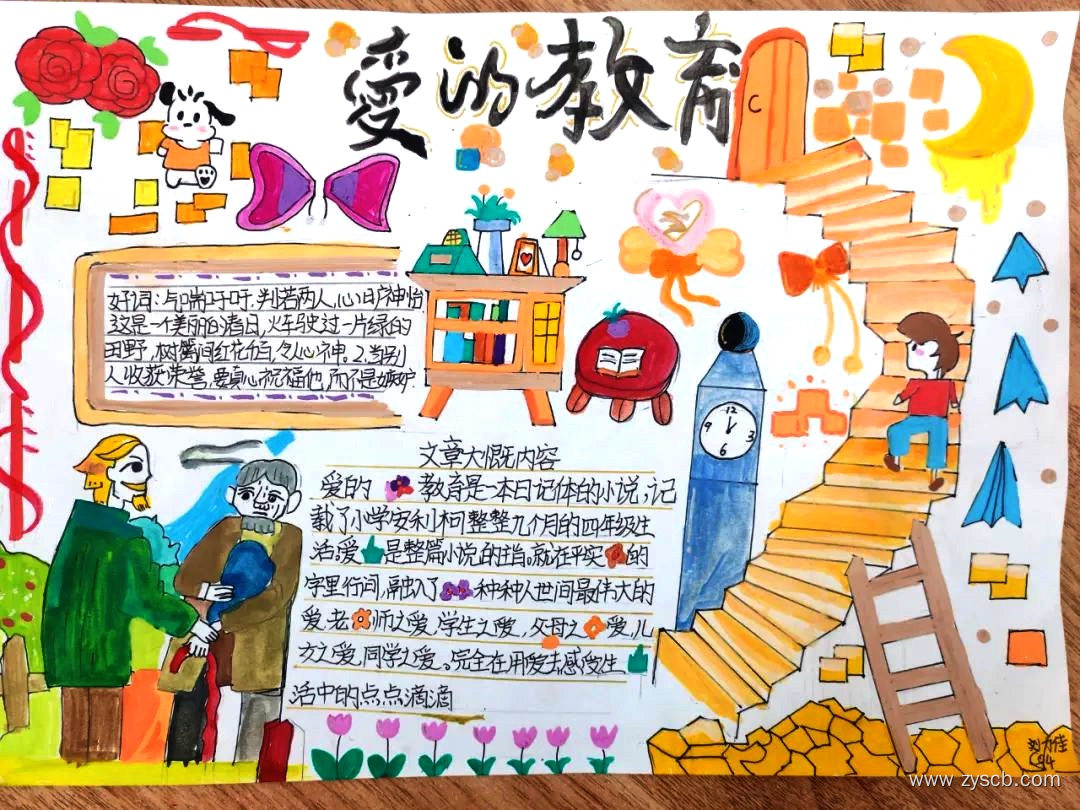 爱的教育
好词:气喘吁吁,判若两人,心旷神怡
这是一个美丽的清日,火车驶过一片绿的
田野,树丛间红花白,令人心神。2.当别
人收获荣誉,要真心祝福他,而不是嫉妒
文章大慨内容
爱的教育是一本日记体的小说,记
载了小学安利柯整整九个月的四年级生
活爱是整篇小说的主旨。就在平实的
字里行间,融入了种种人世间最伟大的
爱.老师之爱,学生之爱,父母之爱,儿
之爱,同学之爱。完全在用爱去感受生
活中的点点滴滴
12
9 3
6
www.zyscb.com